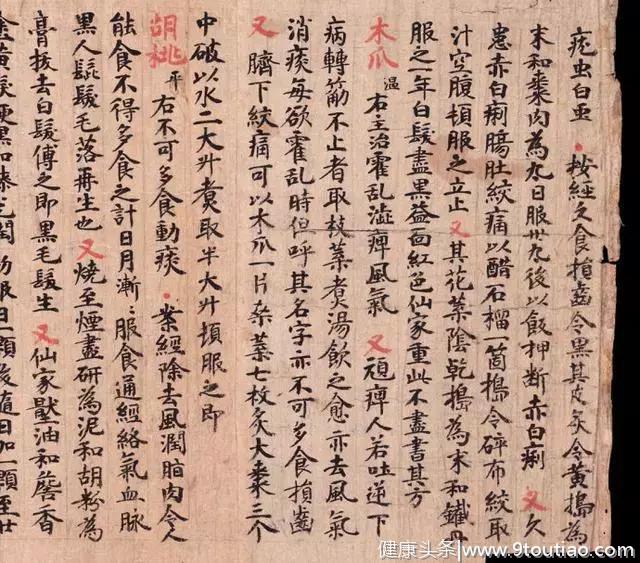 疣虫白虫 · 按經久食損齒令黒其皮炙令黄搗為
末和棗肉為丸日服卅丸後以飯押断赤白痢 又久
患赤白痢腸肚絞痛以醋石榴一箇搗令碎布絞取
汁空腹頓服之立止 又其花葉陰乾搗為末和鐵丹
服之一年白髮盡黒益面紅色仙家重此不盡書其方
木瓜 温 右主治霍乱澁痺風氣 又頑痺人若吐逆下
病轉筋不止者取枝葉煮湯飲之愈亦去風氣
消痰每欲霍乱時但呼其名字亦不可多食損齒
又臍下絞痛可以木瓜一片桒葉七枚炙大棗三个
中破以水二大升煮取半大升頓服之即
胡桃 平 右不可多食動痰 · 案經除去風潤脂肉令人
能食不得多食之計日月漸〻服食通經絡氣血脉
黒人髭髮毛落再生也 又燒至煙盡研為泥和胡粉為
膏拔去白髮傅之即黒毛髮生 又仙家壓油和詹香
塗黄髮便黒如漆光潤初服日一顆後随日加一顆至廿
健康头条/www.9toutiao.com